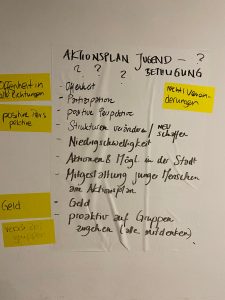 AKTIONSPLAN JUGEND - ?
? ? ? BETEILIGUNG
Offenheit in
alle Richtungen
positive
Mehr Verän-
derungen
- Offenheit
- Partizipation
- positive Perspektive
- Strukturen verändern / NEU
schaffen
- Niedrigschwelligkeit
- Aktionen & Mögl. in der Stadt
- Mitgestaltung junger Menschen
am Aktionsplan
Geld
- Geld
- proaktiv auf Gruppen
zugehen (alle mitdenken)